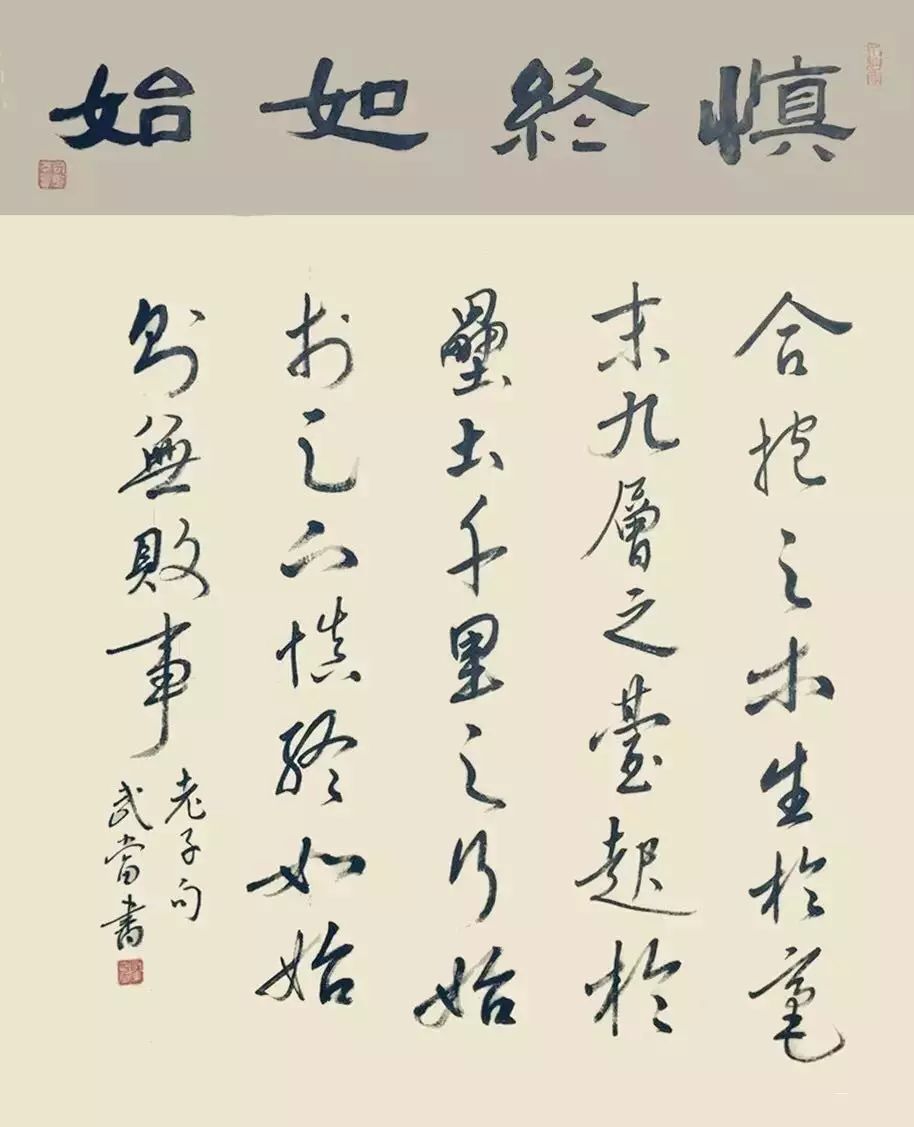 慎終如始
合抱之木生於毫
末九層之臺起於
壘土千里之行始
於足下慎終如始
則無敗事
老子句
武當書